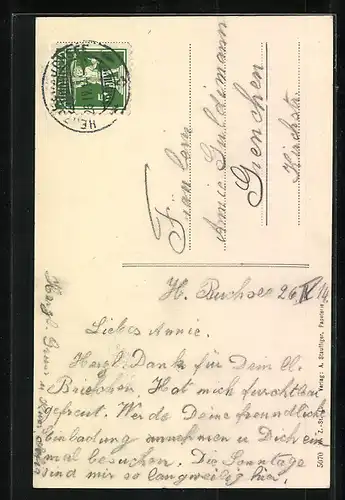 Fräulein
Annie Guldimann
Grenchen
Kirchstr.
H. Buchsee 26 IV 14
Liebes Annie.
Herzl. Dank für Dein lb.
Briefchen. Hat mich furchtbar
gefreut. Werde Deine freundliche
Einladung annehmen u Dich ein
mal besuchen. Die Sonntage
sind mir so langweilig hier,
Herzl. Gruss u Kuss
5670
Verlag: A. Stauffiger, Papeterie